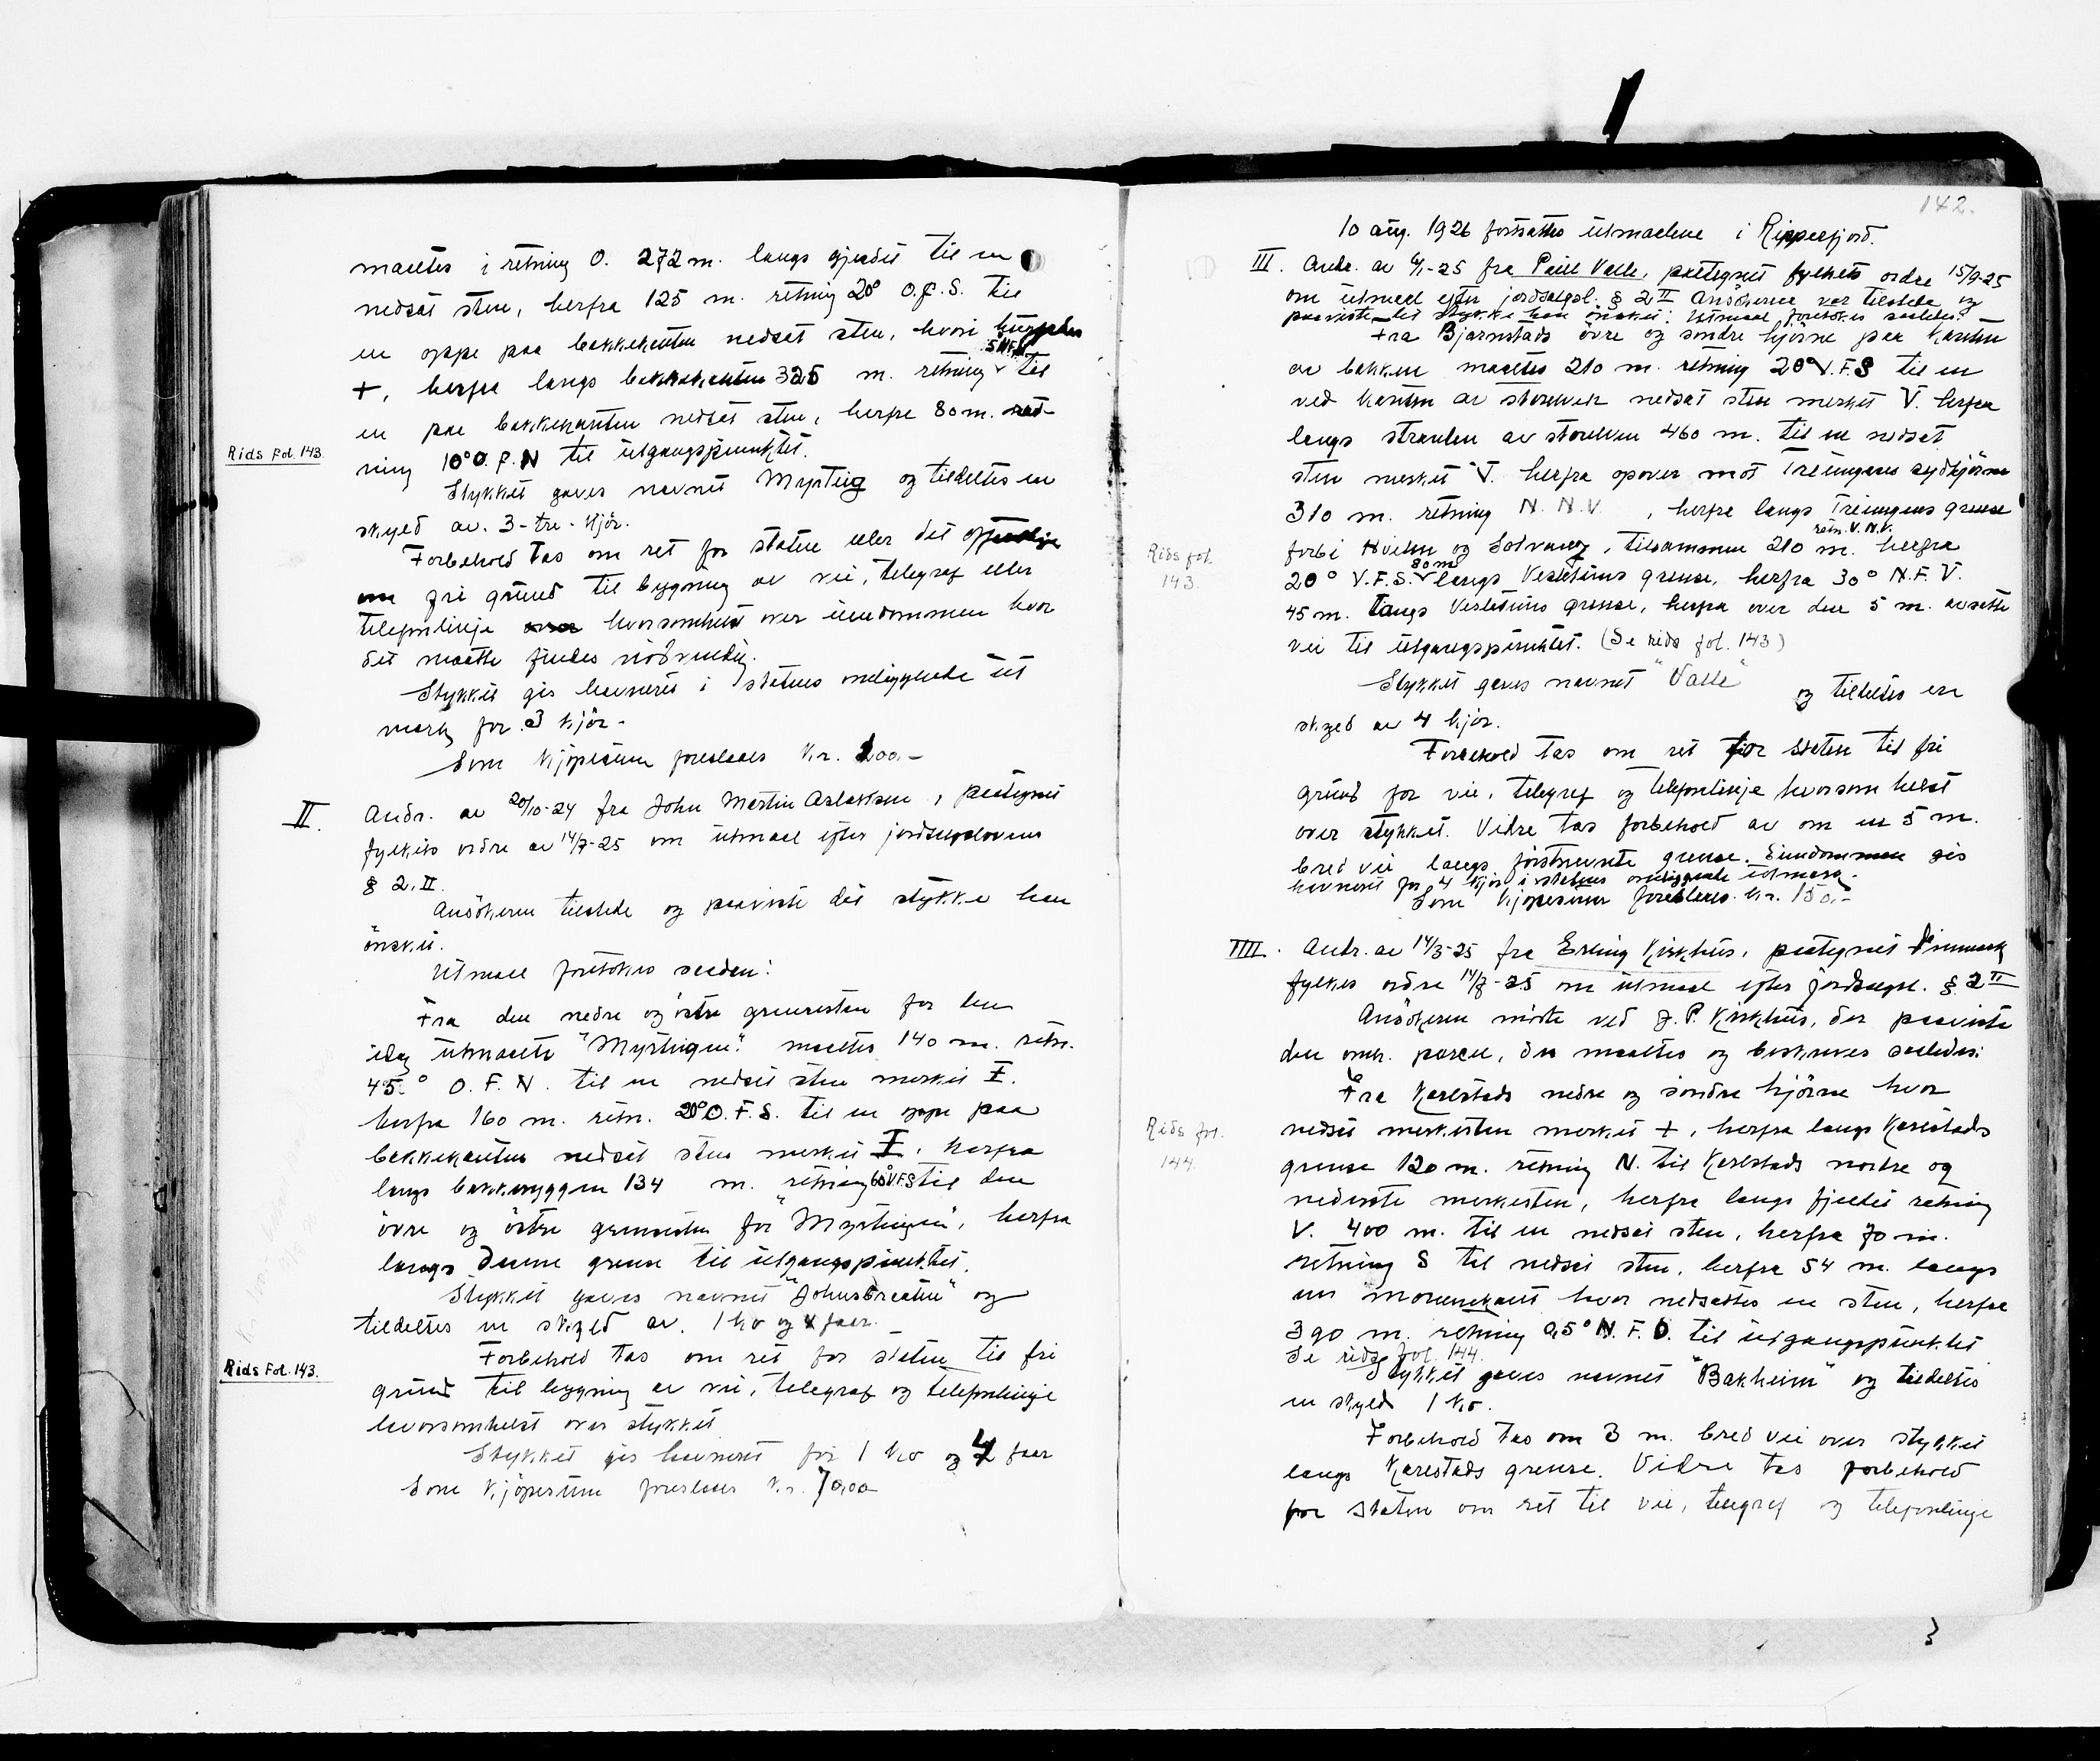 maaltes i retning O. 272 m. langs gjerdet til en
nedsat sten, herfra 125 m. retning 20° O.f.S. til
en oppe paa bakkekanten nedsat sten, hvori
+, herfra langs bakkekanten 325 m. retning til
en paa bakkekanten nedsat sten, herfra 80 m. ret-
Rids Fol. 143.
ning 10° O.f.N til utgangspunktet.
Stykket gaves navnet Myrteig og tildeltes en
skyld av. 3 - tre - kjør.
Forbehold tas om ret for staten eller det offentlige
om fri grund til bygning av vei, telegraf eller
telefonlinje hvorsomhelst over eiendommen hvor
det maatte findes nødvendig.
Stykket gis havneret i statens omliggende ut
mark for 3 kjør -
Som kjøpesum foreslaaes Kr. 200.-
II. Andr. av 20/10-24 fra John Martin Aslaksen, paategnet
fylkets ordre av 14/7-25 om utmaal efter jordsalgslovens
§ 2. II.
Ansøkeren tilstede og paaviste det stykke han
ønsket.
Utmaal foretokes saaden:
Fra den nedre og østre grensesten for den
idag utmaalte "Myrteigen" maaltes 140 m. retn.
45° O.F.N. til en nedsat sten merket I.
herfra 160 m. retn. 20° O.F.S. til en oppe paa
bakkekanten nedsat sten merket I, herfra
langs bakkeryggen 134 m. retning 60° V.F.S til den
øvre og østre grensesten for "Myrteigen", herfra
langs denne grense til utgangspunktet.
Stykket gaves navnet "Johnsbraaten" og
tildeltes en skyld av. 1 ko og 4 faar.
Forbehold tas om ret for staten til fri
Rids Fol. 143.
grund til bygning av vei, telegraf og telefonlinje
hvorsomhelst over stykket
Stykket gis havneret for 1 ko og 4 faar
Som kjøpesum foreslaaes Kr. 70,00
142.
10 aug. 1926 fortsattes utmaalene i Repparfjord.
III. Andr. av fra Paul Valle, paategnet fylkets ordre 15/9-25
om utmaal efter jordsalgsl. § 2 II Ansøkeren var tilstede og
paaviste det stykke han ønsket. Utmaal foretokes saaledes:
Fra Bjørnstads øvre og søndre hjørne paa kanten
av bakken maaltes 210 m. retning 20° V.F.S til en
ved kanten av storelven nedsat sten merket V. herfra
langs stranden av storelven 460 m. til en nedsat
sten merket V. herfra opover mot Treungens sydhjørne
310 m. retning N.N.V. , herfra langs Treungens grense
retn. V.N.V.
forbi Hvilen og Solvang, tilsammen 210 m. herfra
Rids fol.
143.
80 m
20° V.F.S. langs Vesletuns grense, herfra 30° N.F.V.
45 m. langs Vesletuns grense, herfra over den 5 m. avsatte
vei til utgangspunktet. (Se rids fol. 143)
Stykket gaves navnet "Valle" og tildeltes en
skyld av 4 kjør.
Forbehold tas om ret for staten til fri
grund for vei, telegraf og telefonlinje hvorsom helst
over stykket. Vidre tas forbehold av om en 5 m.
bred vei langs førstnevnte grense. Eiendommen gis
havneret for 4 kjør i statens omliggende utmark.
Som kjøpesum foreslaaes. kr. 150.-
IIII. Andr. av 14/3-25 fra Erling Kirkhus, paategnet Finnmark
fylkes ordre 14/7-25 om utmaal efter jordsalgsl. § 2 II
Ansøkeren møtte ved J. P. Kirkhus, der paaviste
den omh. parcel, der maaltes og beskrives saaledes:
Fra Karlstads nedre og søndre hjørne hvor
Rids fol.
144.
nedsat merkesten merket +, herfra langs Karlstads
grense 120 m. retning N. til Karlstads nordre og
nederste merkesten, herfra langs fjeldet retning
V. 400 m. til en nedsat sten, herfra 70 m.
retning S til nedsat sten, herfra 54 m. langs
en morænekant hvor nedsattes en sten, herfra
390 m. retning 25° N.F.O. til utgangspunktet
Se rids fol. 144.
Stykket gaves navnet "Bakheim" og tildeltes
en skyld 1 ko.
Forbehold tas om 3 m. bred vei over stykket
langs Karlstads grense. Vidre tas forbehold
for staten om ret til vei, telegraf og telefonlinje